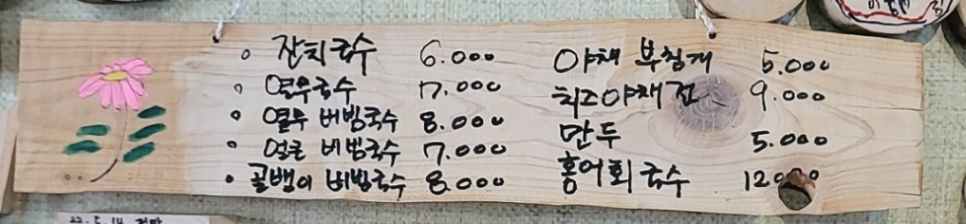 잔치국수 6.000
열무국수 7.000
열무 비빔국수 8.000
얼큰 비빔국수 7.000
골뱅이 비빔국수 8.000
야채 부침개 5.000
치즈야채전 9.000
만두 5.000
홍어회국수 12000
22.5.14